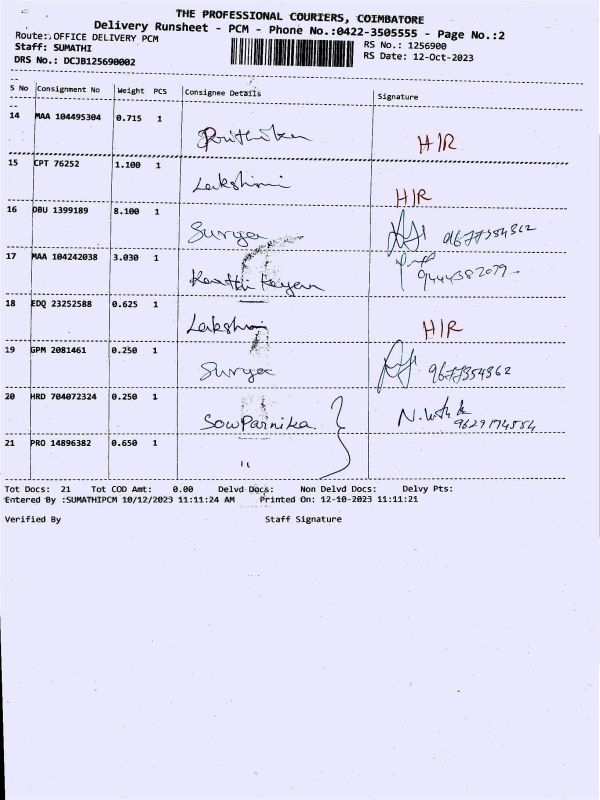 THE PROFESSIONAL COURIERS, COIMBATORE
Delivery Runsheet - PCM - Phone No.:0422-3505555 - Page No.:2
Route: OFFICE DELIVERY PCM
RS No.: 1256900
Staff: SUMATHI
RS Date: 12-Oct-2023
DRS No.: DCJB125690002
S No Consignment No Weight PCS Consignee Details Signature
14 MAA 104495304 0.715 1 Prithika H/R
15 CPT 76252 1.100 1 Lakshmi H/R
16 DBU 1399189 8.100 1 Surya 9677354362
17 MAA 104242038 3.030 1 Karthi Keyan 9444382079
18 EDQ 23252588 0.625 1 Lakshmi H/R
19 GPM 2081461 0.250 1 Surya 9677354362
20 HRD 704072324 0.250 1 Sowparnika
21 PRO 14896382 0.650 1 "
Tot Docs: 21 Tot COD Amt: 0.00 Delvd Docs: Non Delvd Docs: Delvy Pts:
Entered By :SUMATHIPCM 10/12/2023 11:11:24 AM Printed On: 12-10-2023 11:11:21
Verified By Staff Signature